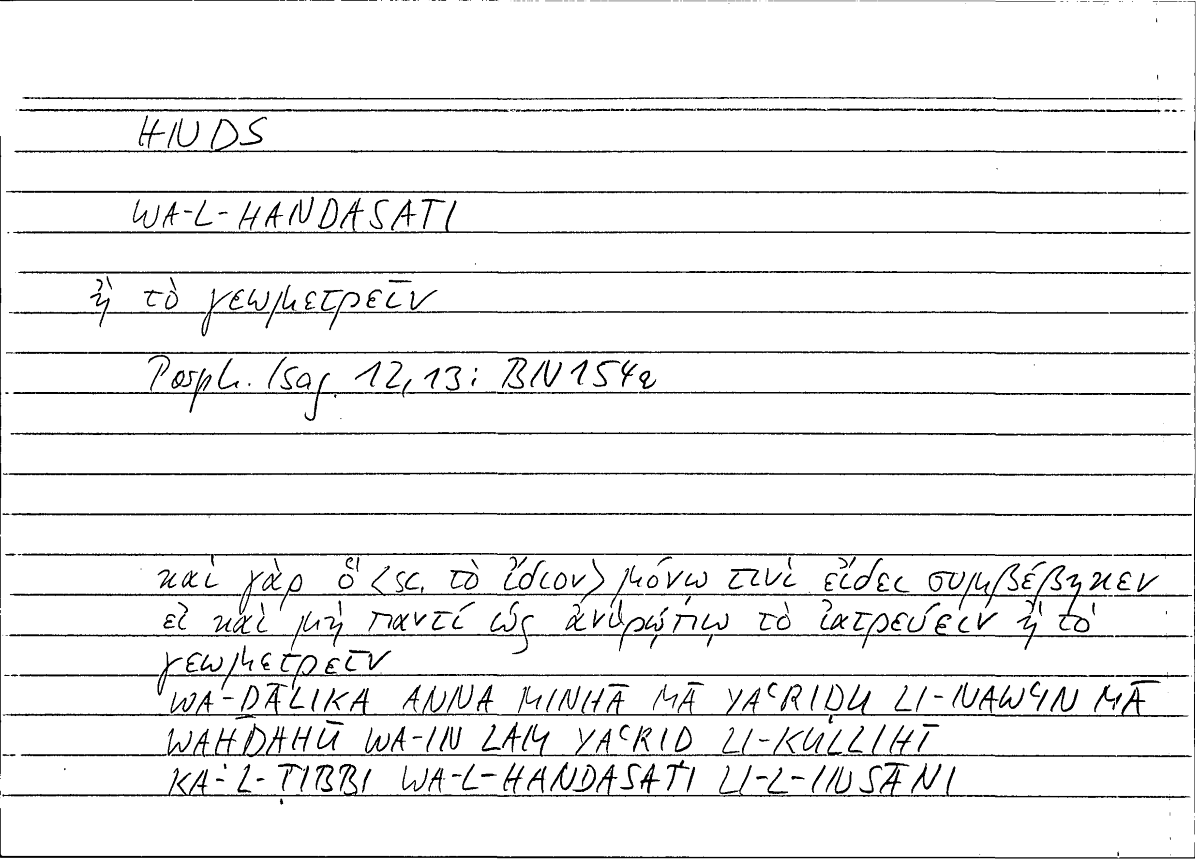 HNDS
WA-L-HANDASATI
ἢ τὸ γεωμετρεῖν
Porph. Isag. 12,13: BN154a
καὶ γὰρ ὃ <sc. τὸ ἴδιον> μόνῳ τινὶ εἴδει συμβέβηκεν
εἰ καὶ μὴ παντί ὡς ἀνθρώπῳ τὸ ἰατρεύειν ἢ τὸ
γεωμετρεῖν
WA-ḎĀLIKA ANNA MINHĀ MĀ YAʿRIḌU LI-NAWʿIN MĀ
WAḤDAHŪ WA-IN LAM YAʿRIḌ LI-KULLIHĪ
KA-L-ṬIBBI WA-L-HANDASATI LI-L-INSĀNI